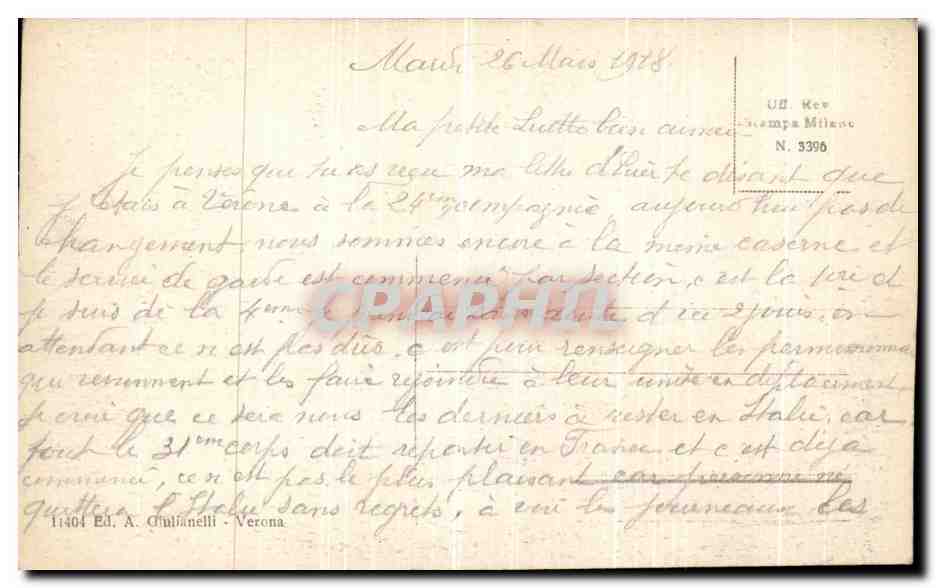 Mardi 26 Mars 1918
Uff. Rev
Stampa Milano
N. 3396
Ma petite bien aimée
Je penses que tu as reçu ma lettre d'hier te disant que
j'etais à Vérone à la 24eme compagnie, aujourd'hui pas de
changement nous sommes encore à la meme caserne et
le service de garde est commencé par section, c est la 1ere et
je suis de la 4eme je d ici 2 jours, en
attendant ce n est pas dûr, c est pour renseigner les permissionnaires
qui reviennent et les faire rejoindre à leur unité en déplacement
je crois que ce sera nous les derniers à rester en Italie, car
tout le 31eme corps doit repartir en France et c est déja
commencé, ce n est pas le plus plaisant car personne ne
quittera l'Italie sans regrets, à voir les journeaux les
CPAPHIL
11404 Ed. A. Giulianelli - Verona